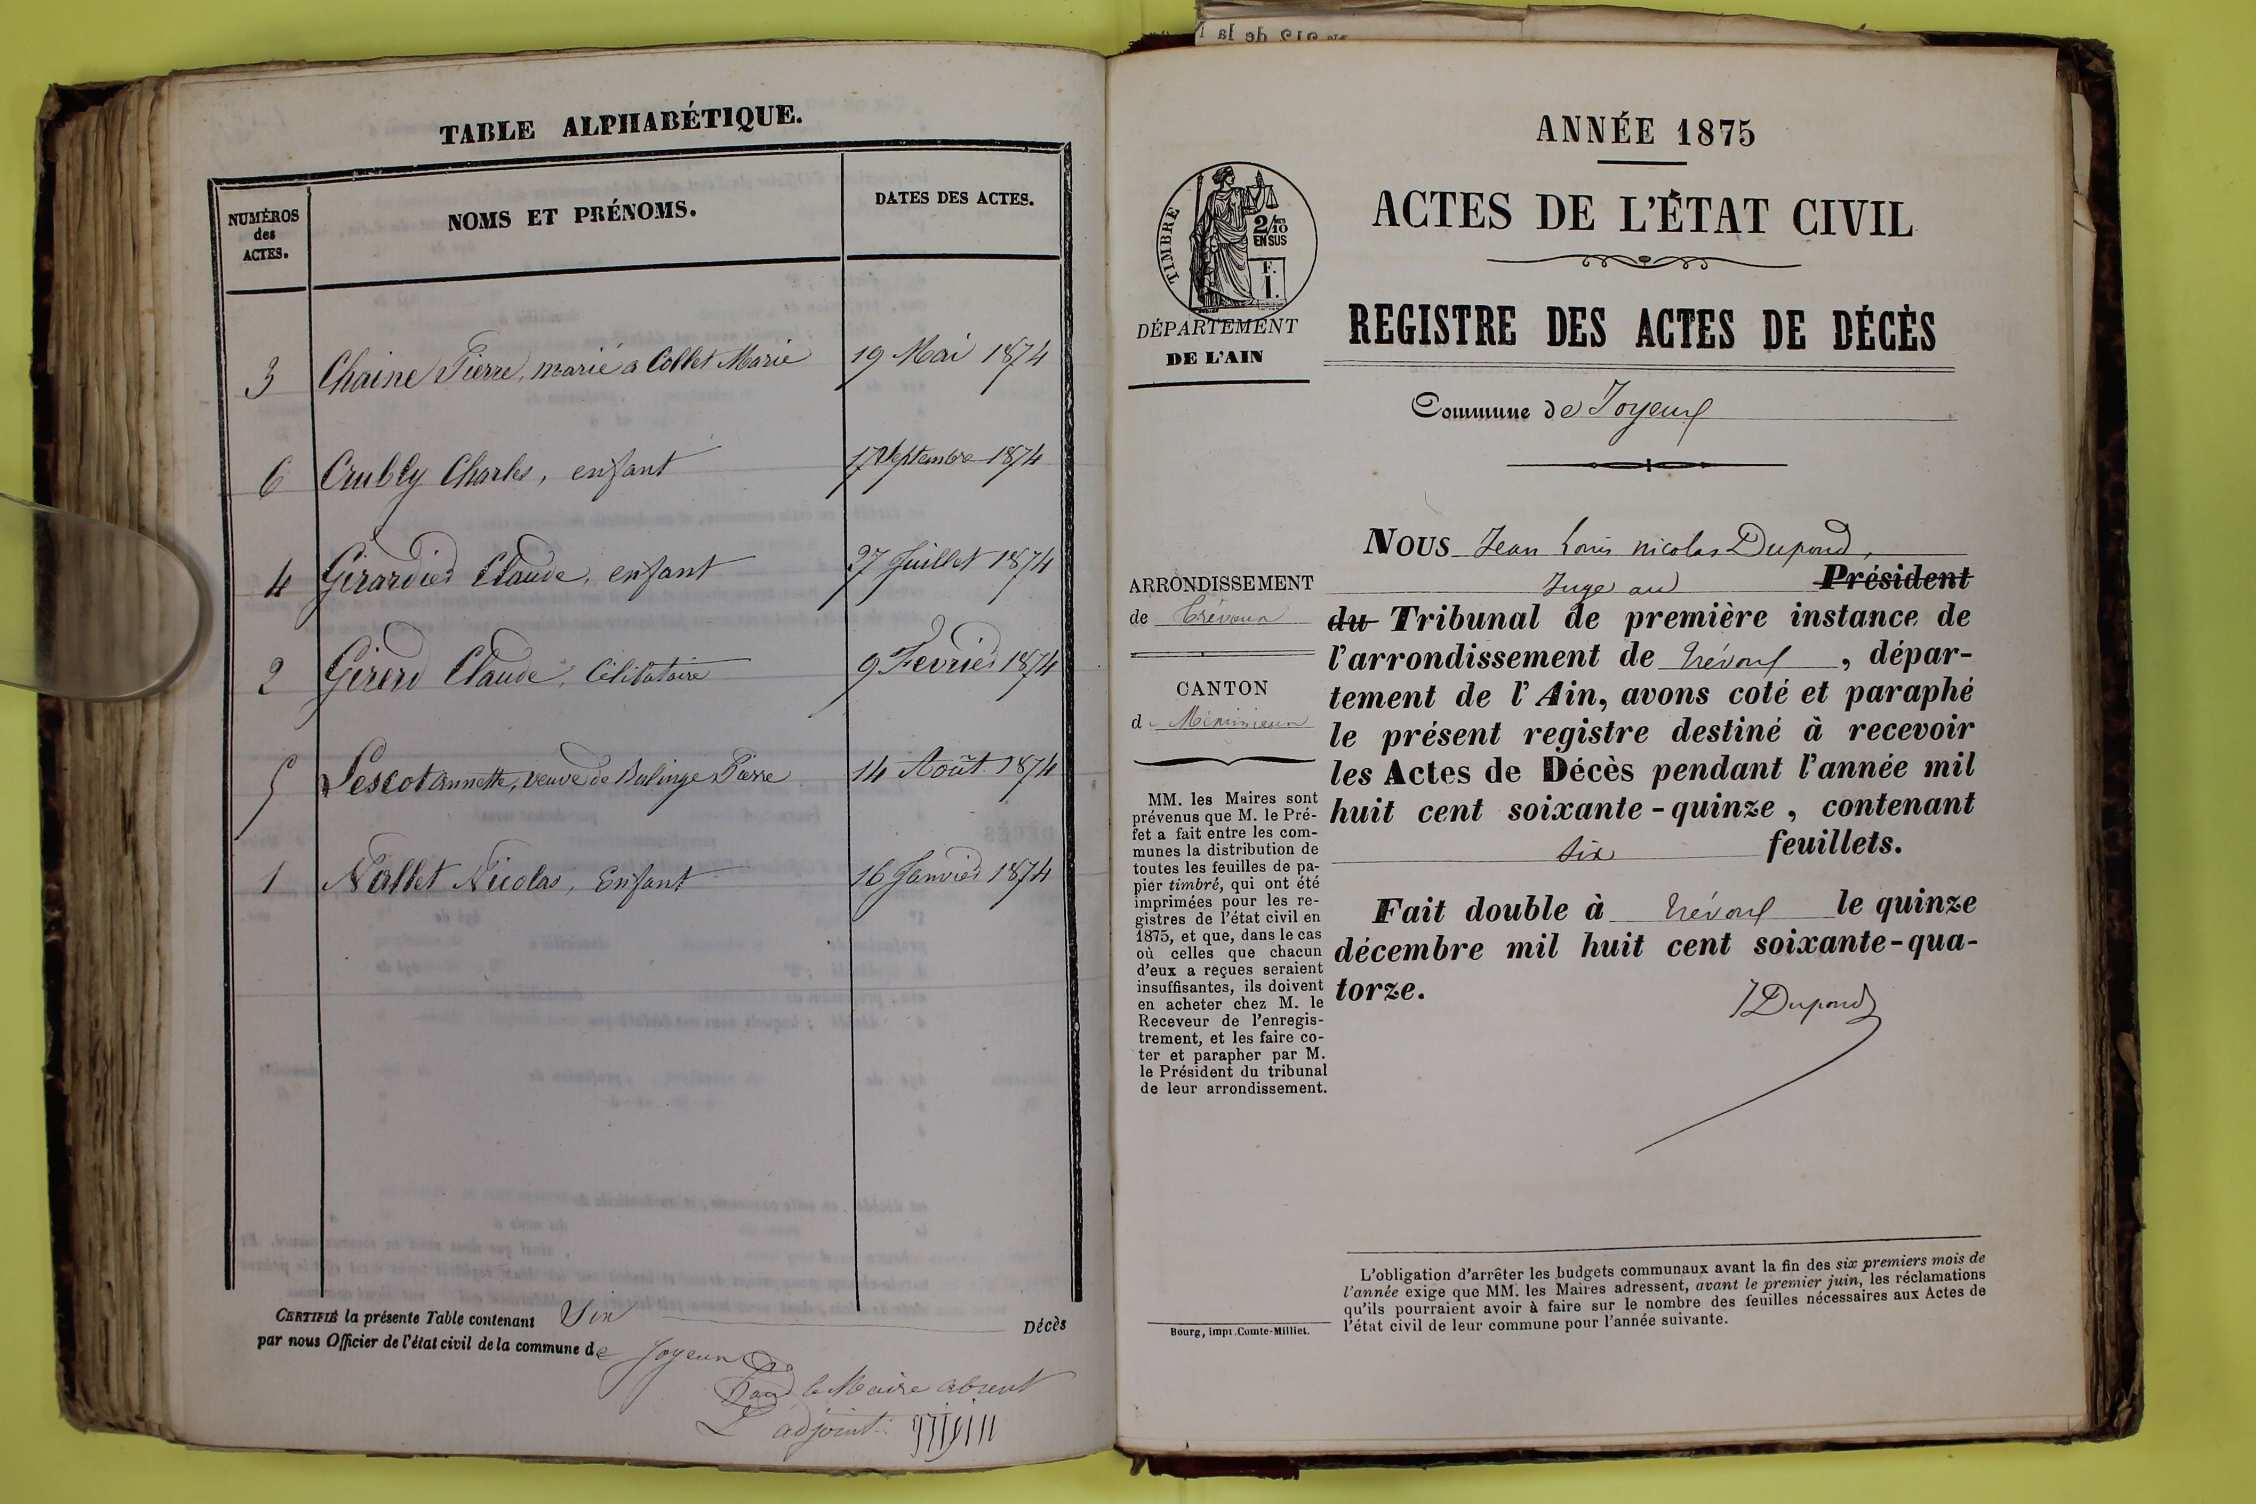 TABLE ALPHABÉTIQUE.
NUMÉROS
des
ACTES.
NOMS ET PRÉNOMS.
DATES DES ACTES.
3 Chaine Pierre, marié a Collet Marie 19 Mai 1874
6 Crubly Charles, enfant 17 Septembre 1874
4 Girardier Claude, enfant 27 Juillet 1874
2 Girerd Claude, Célibataire 9 Fevrier 1874
5 Lescot Annette, veuve de Bulinge Pierre 14 Août 1874
1 Nallet Nicolas, Enfant 16 Janvier 1874
CERTIFIÉ la présente Table contenant Six Décès
par nous Officier de l'état civil de la commune de Joyeux
Pour le Maire absent
L'adjoint
ANNÉE 1875
ACTES DE L'ÉTAT CIVIL
REGISTRE DES ACTES DE DÉCÈS
Commune de Joyeux
TIMBRE
2/10 EN SUS
F.
1.
DÉPARTEMENT
DE L'AIN
ARRONDISSEMENT
de Trévoux
CANTON
de Méximieux
MM. les Maires sont
prévenus que M. le Pré-
fet a fait entre les com-
munes la distribution de
toutes les feuilles de pa-
pier timbré, qui ont été
imprimées pour les re-
gistres de l'état civil en
1875, et que, dans le cas
où celles que chacun
d'eux a reçues seraient
insuffisantes, ils doivent
en acheter chez M. le
Receveur de l'enregis-
trement, et les faire co-
ter et parapher par M.
le Président du tribunal
de leur arrondissement.
Bourg, impr. Comte-Milliet.
NOUS Jean Louis Nicolas Dupond,
Juge au Président
du Tribunal de première instance de
l'arrondissement de Trévoux, dépar-
tement de l'Ain, avons coté et paraphé
le présent registre destiné à recevoir
les Actes de Décès pendant l'année mil
huit cent soixante-quinze, contenant
six feuillets.
Fait double à Trévoux le quinze
décembre mil huit cent soixante-qua-
torze.
JDupond
L'obligation d'arrêter les budgets communaux avant la fin des six premiers mois de
l'année exige que MM. les Maires adressent, avant le premier juin, les réclamations
qu'ils pourraient avoir à faire sur le nombre des feuilles nécessaires aux Actes de
l'état civil de leur commune pour l'année suivante.